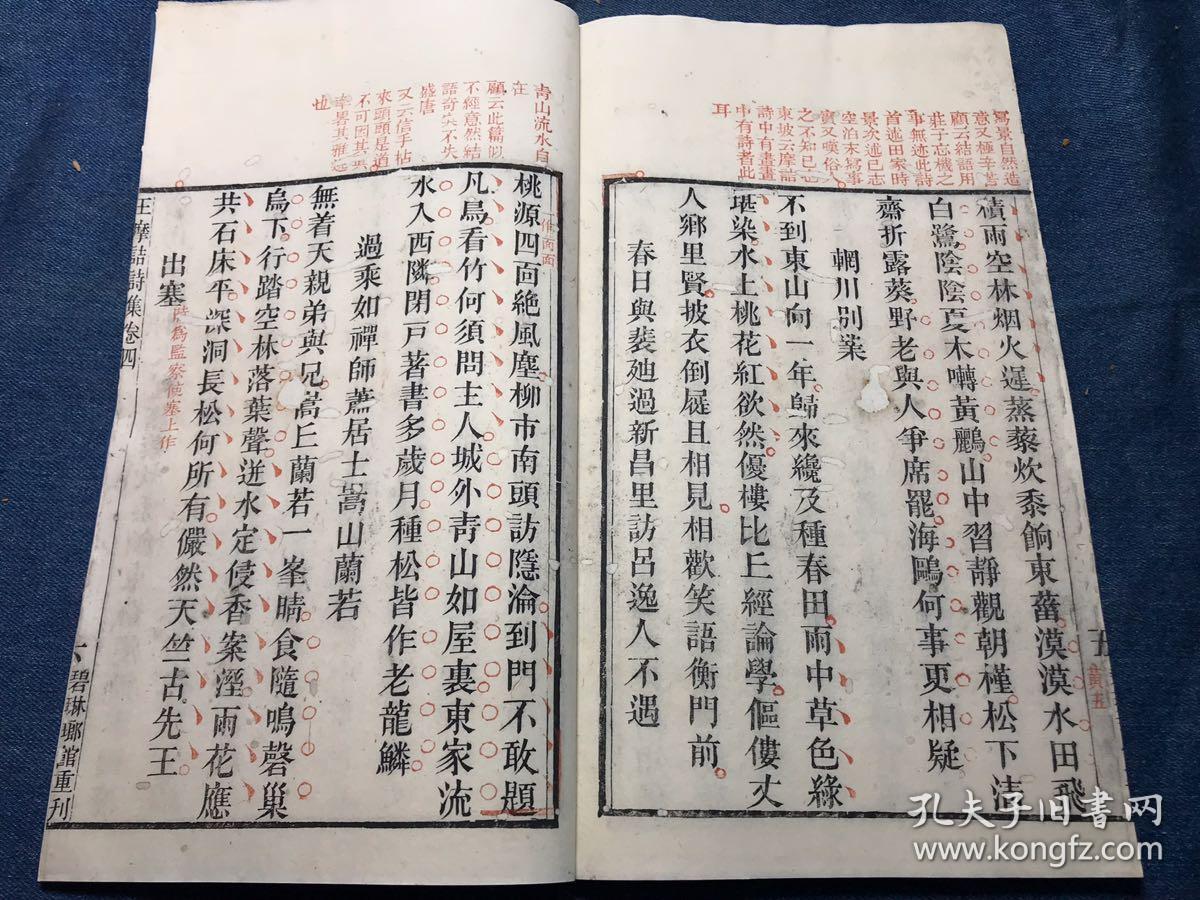 寫景自然造
意又極辛苦
顧云結語用
莊子忘機之
事無迹此詩
首述田家時
景次述已志
空泊末寫事
實又嘆俗人
之不知已也
東坡云摩詰
詩中有畫畫
中有詩者此
耳
積雨空林烟火遲蒸藜炊黍餉東菑漠漠水田飛
白鷺陰陰夏木囀黃鸝山中習靜觀朝槿松下清
齋折露葵野老與人爭席罷海鷗何事更相疑
輞川別業
不到東山向一年歸來纔及種春田雨中草色綠
堪染水上桃花紅欲然優樓比丘經論學傴僂丈
人鄉里賢披衣倒屣且相見相歡笑語衡門前
春日與裴廸過新昌里訪呂逸人不遇
五
黃五
青山流水自
在
顧云此篇似
不經意然結
語奇尖不失
盛唐
又云信手帖
來頭頭是道
不可因其
畧其雅
也
桃源四面絶風塵柳市南頭訪隱淪到門不敢題
一作面面
凡鳥看竹何須問主人城外青山如屋裏東家流
水入西隣閉戸著書多歲月種松皆作老龍鱗
過乘如禪師蕭居士嵩山蘭若
無着天親弟與兄嵩丘蘭若一峯晴食隨鳴磬巢
烏下行踏空林落葉聲迸水定侵香案溼雨花應
共石床平深洞長松何所有儼然天竺古先王
出塞時爲監察使塞上作
王摩詰詩集卷四
六
碧琳瑯館重刊
孔夫子旧书网
www.kongfz.com